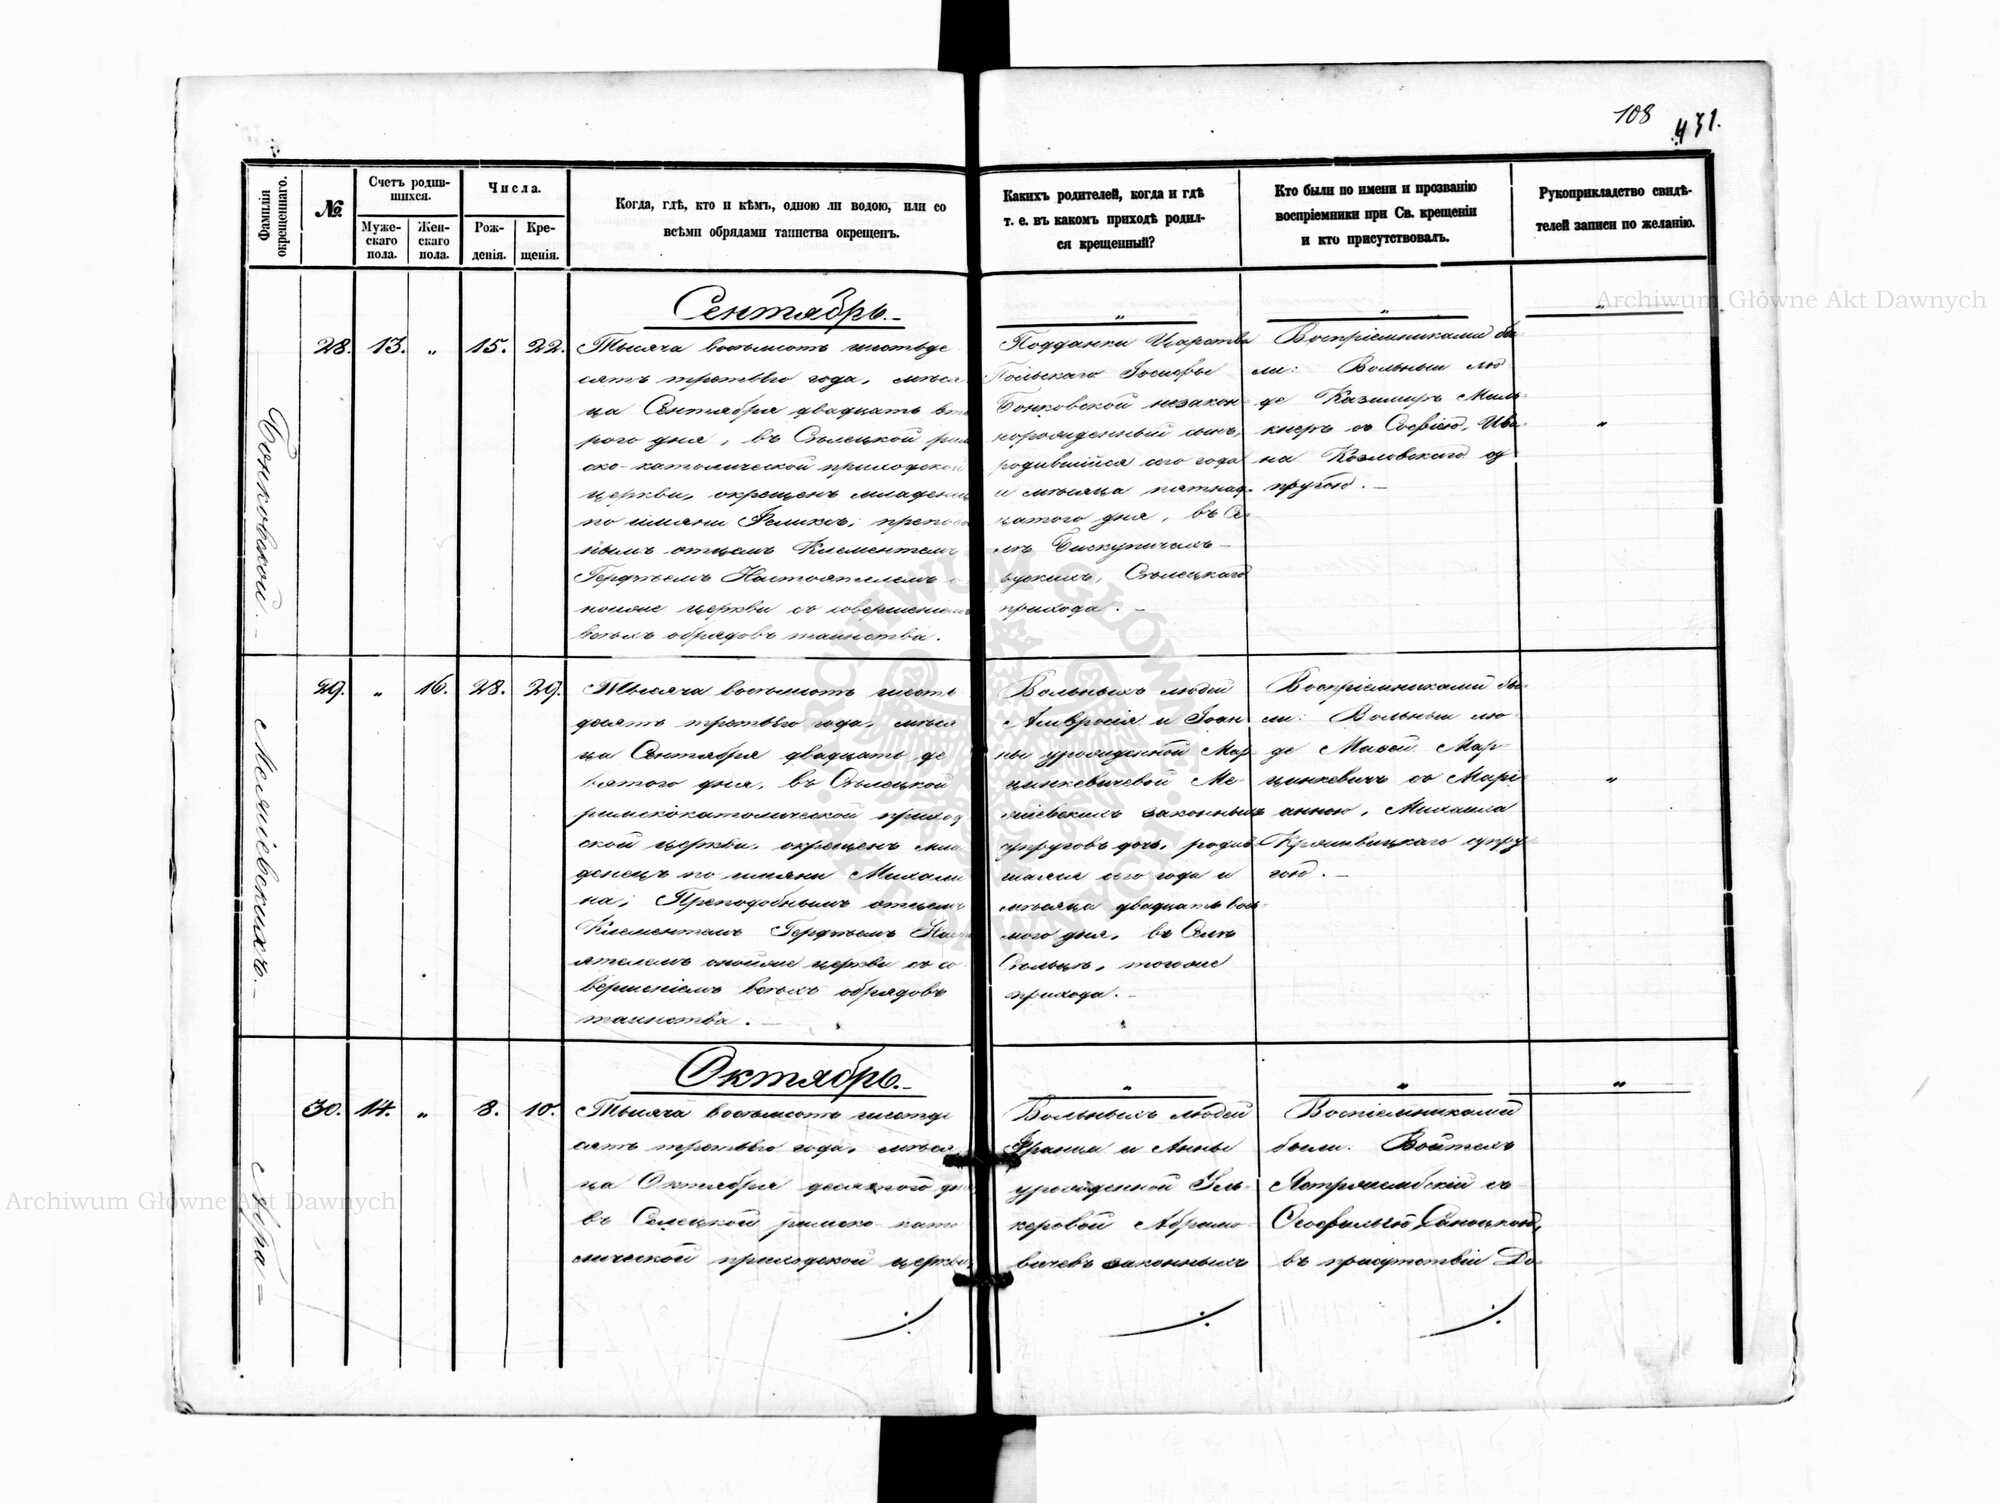 108
431.
Фамилія окрещеннаго.
№
Счетъ родив-
шихся.
Муже-
скаго
пола.
Жен-
скаго
пола.
Числа.
Рож-
денія.
Кре-
щенія.
Когда, гдѣ, кто и кѣмъ, одною ли водою, или со
всѣми обрядами таинства окрещенъ.
Какихъ родителей, когда и гдѣ
т. е. въ какомъ приходѣ родил-
ся крещенный?
Кто были по имени и прозванію
воспріемники при Св. крещеніи
и кто присутствовалъ.
Рукоприкладство свидѣ-
телей записи по желанію.
Бонковской.
28. 13. „ 15. 22.
Сентябрь.
Тысяча восемьсотъ шестьде
сятъ третьяго года, мѣся
ца Сентября двадцать вто
рого дня, въ Сѣлецкой рим
ско-католической приходской
церкви, окрещенъ младенец
по имяни Феликсъ, препо
нымъ отцемъ Клементем
Настоятелемъ
церкви съ совершеніемъ
всѣхъ обрядовъ таинства.
„
Подданки Царства
Польскаго Іосифы
Бонковской незакон-
норожденный сынъ,
родившійся сего года
и мѣсяца пятнад-
цатого дня, въ Се-
лѣ
Сѣлецкаго
прихода. –
„
Воспріемниками бы
ли: Вольныи лю
де Казимиръ Миль-
кнеръ съ Софіею, Ива-
на Козловскаго су
пругою. –
„
„
Меляіевскихъ.
29. „ 16. 28. 29.
Тысяча восемьсотъ шесть
десятъ третьяго года, мѣся
ца Сентября двадцать де
вятого дня, въ Сѣлецкой
римскокатолической приход
ской церкви, окрещенъ мла
денецъ по имяни Михали
на, Преподобнымъ отцемъ
Клементемъ Наст
ятелемъ оной же церкви съ со
вершеніемъ всѣхъ обрядовъ
таинства. –
Вольныхъ людей
Амвросія и Іоан
ны урожденной Мар-
цинкевичевой Ме-
ляіевскихъ законныхъ
супруговъ дочь, родив-
шаяся сего года и
мѣсяца двадцать вось-
мого дня, въ Селѣ
Сѣльцѣ, того же
прихода. –
Воспріемниками бы-
ли: Вольныи лю-
де Мар-
цинкевичъ съ Марі-
анною, Михаила
супру-
гою. –
„
Абра=
30. 14. „ 8. 10.
Октябрь.
Тысяча восемьсотъ шестьде
сятъ третьяго года, мѣся
ца Октября десятого дня
въ Селецкой римско-като
лической приходской церкви,
„
Вольныхъ людей
Франца и Анны
урожденной Уль-
керовой Абрамо-
вичевъ законныхъ
„
Воспріемниками
были: Войтехъ
Ястржембскій съ
въ присутствіи До-
„
Archiwum Główne Akt Dawnych
Archiwum Główne Akt Dawnych
ARCHIWUM GŁÓWNE AKT DAWNYCH